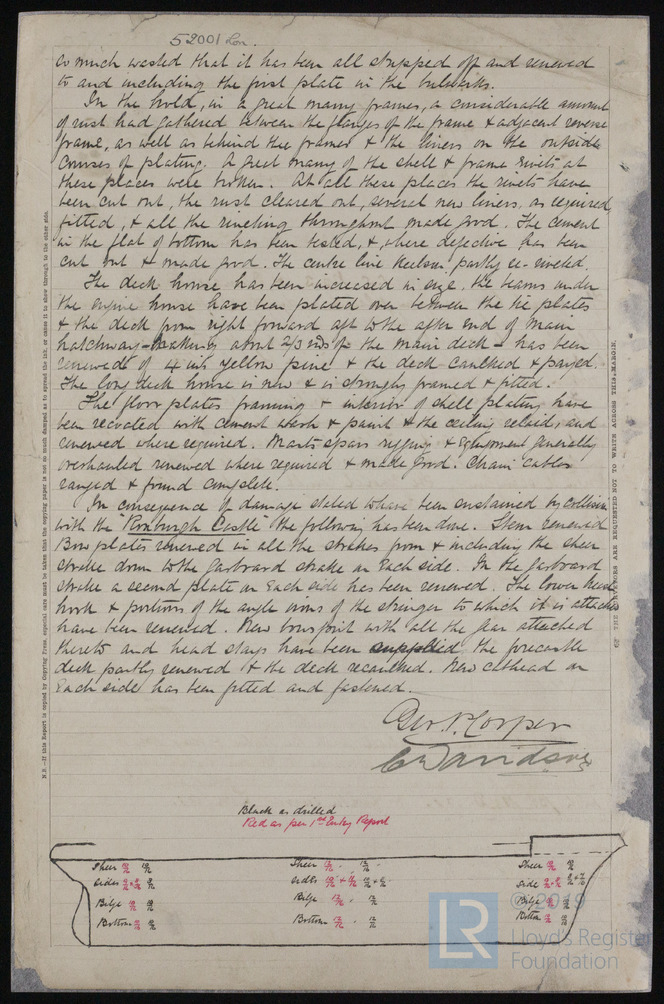 52001 Lon.
so much wasted that it has been all stripped off and renewed
to and including the first plate in the bulwarks.
In the hold, in a great many frames, a considerable amount
of rust had gathered between the flanges of the frame & adjacent reverse
frame, as well as behind the frames & the liners on the outside
courses of plating. A great many of the shell & frame rivets at
these places were broken. At all these places the rivets have
been cut out, the rust cleared out, several new liners, as required,
fitted, & all the riveting throughout made good. The cement
in the flat of bottom has been tested, &, where defective has been
cut out & made good. The centre line keelson partly re-riveted.
The deck house has been increased in size, the beams under
the engine house have been plated over between the tie plates
& the deck from right forward aft to the after end of main
hatchway making about 2/3 rds of the main deck has been
renewed of 4 inch yellow pine & the deck caulked & payed.
The long deck house is new & is strongly framed & fitted.
The floor plates framing & interior of shell plating have
been recoated with cement wash & paint & the ceiling relaid, and
renewed where required. Masts spars rigging & Equipment generally
overhauled renewed where required & made good. Chain Cables
ranged & found complete.
In consequence of damage stated to have been sustained by collision
with the Roxburgh Castle the following has been done. Stem renewed
Bow plates renewed in all the strakes from & including the sheer
strake down to the garboard strake on Each side. In the garboard
strake a second plate on Each side has been renewed. The lower
hook & portions of the angle irons of the stringer to which it is attached
have been renewed. New bowsprit with all the gear attached
thereto and head stays have been supplied the forecastle
deck partly renewed & the deck recaulked. New cathead on
Each side has been fitted and fastened.
Geo. P. Cooper
C Davidson
N.B.—If this Report is copied by Copying Press, especial care must be taken that the copying paper is not so much damped as to spread the ink, or cause it to show through to the other side.
ARE REQUESTED NOT TO WRITE ACROSS THIS MARGIN.
Black as drilled
Red as per 1st Entry Report
Sheer
Sides
Bilge
Bottom
Sheer
Sides
Bilge
Bottom
Sheer
Side
Bilge
Bottom
© 2019
LR
Lloyd's Register
Foundation